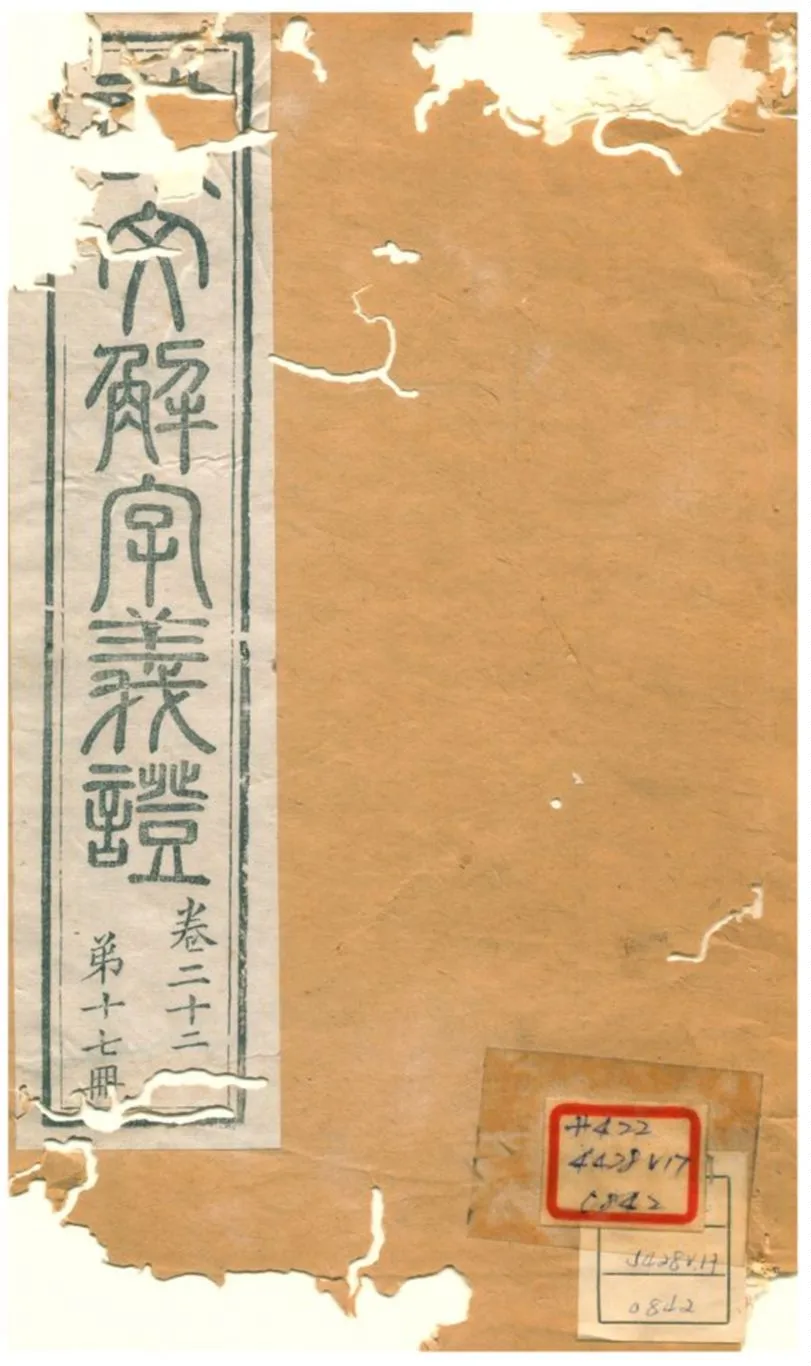 文解字義證
卷二十二
第十七冊
H422
4428 V.17
0842
J428 V.17
0842